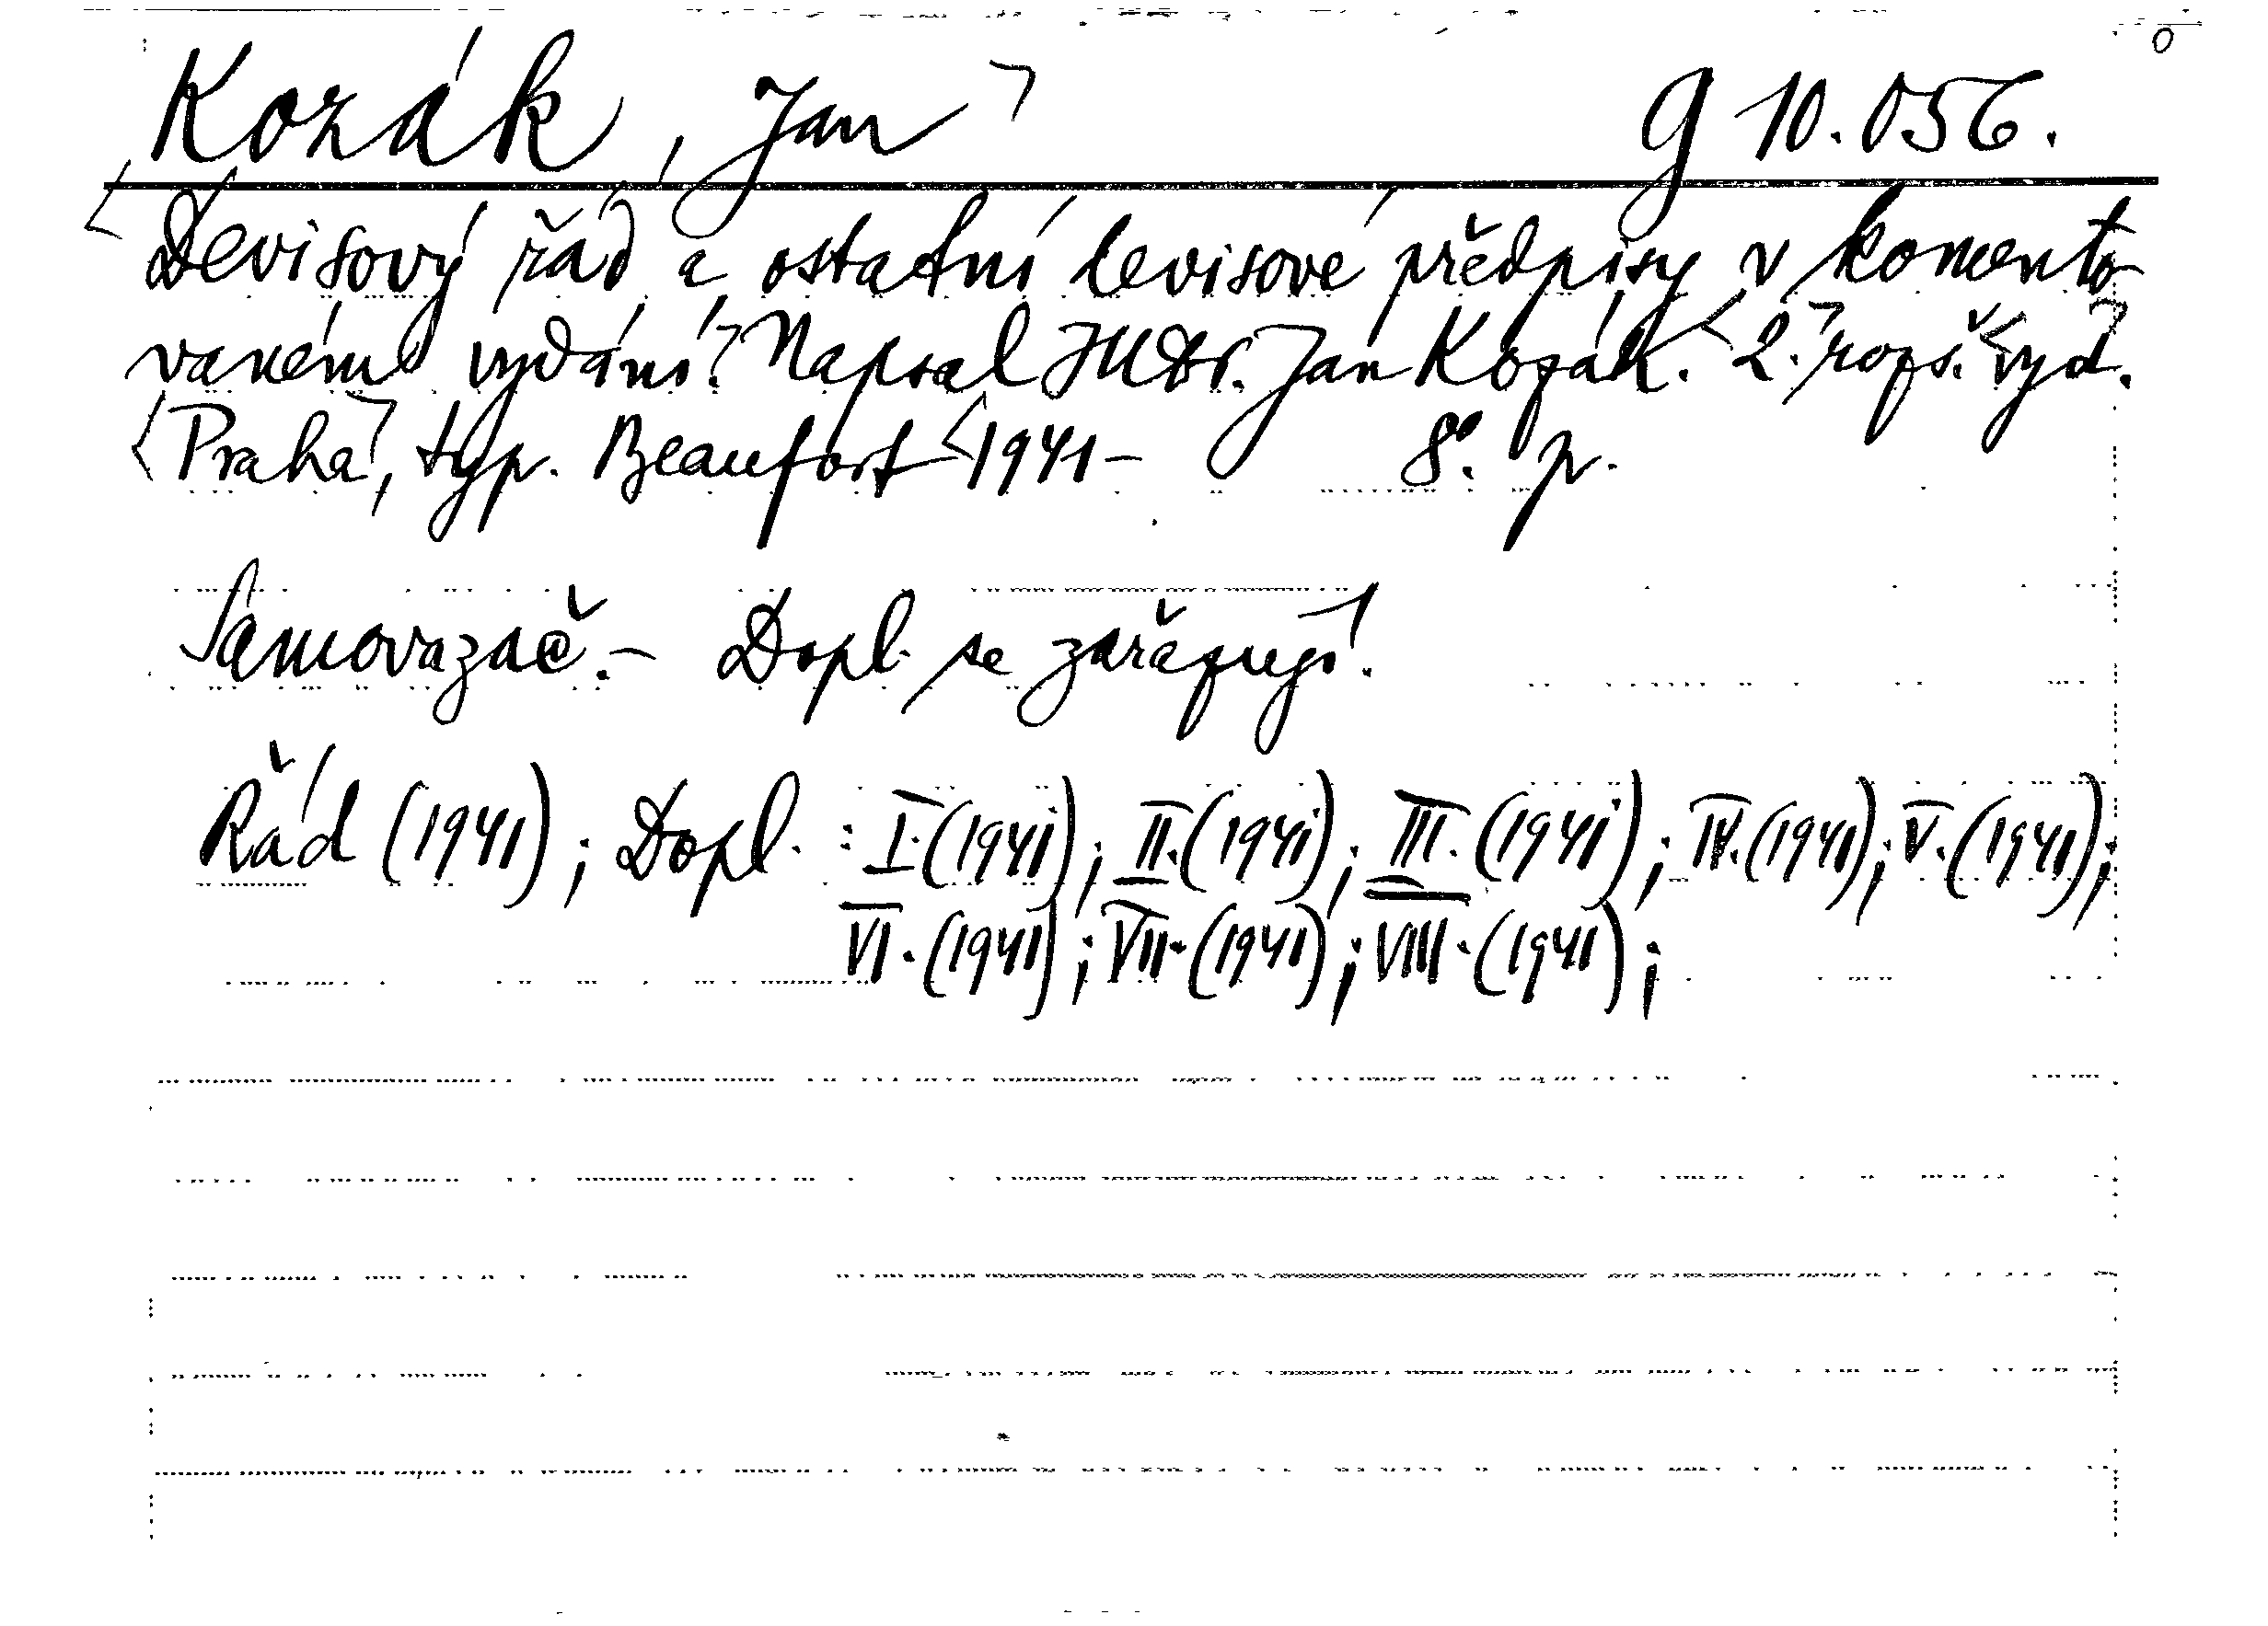 Kozák, Jan G 10.056.
Devisový řád a ostatní devisové předpisy v komento-
vaném vydání. Napsal JUDr. Jan Kozák. 2. rozš. vyd.
Praha, typ. Beaufort 1941- 8°. p.
Samovazač.- Dopl. se zařazují.
Řád (1941); Dopl. : I. (1941); II. (1941); III. (1941); IV. (1941); V. (1941);
VI. (1941); VII. (1941); VIII. (1941);